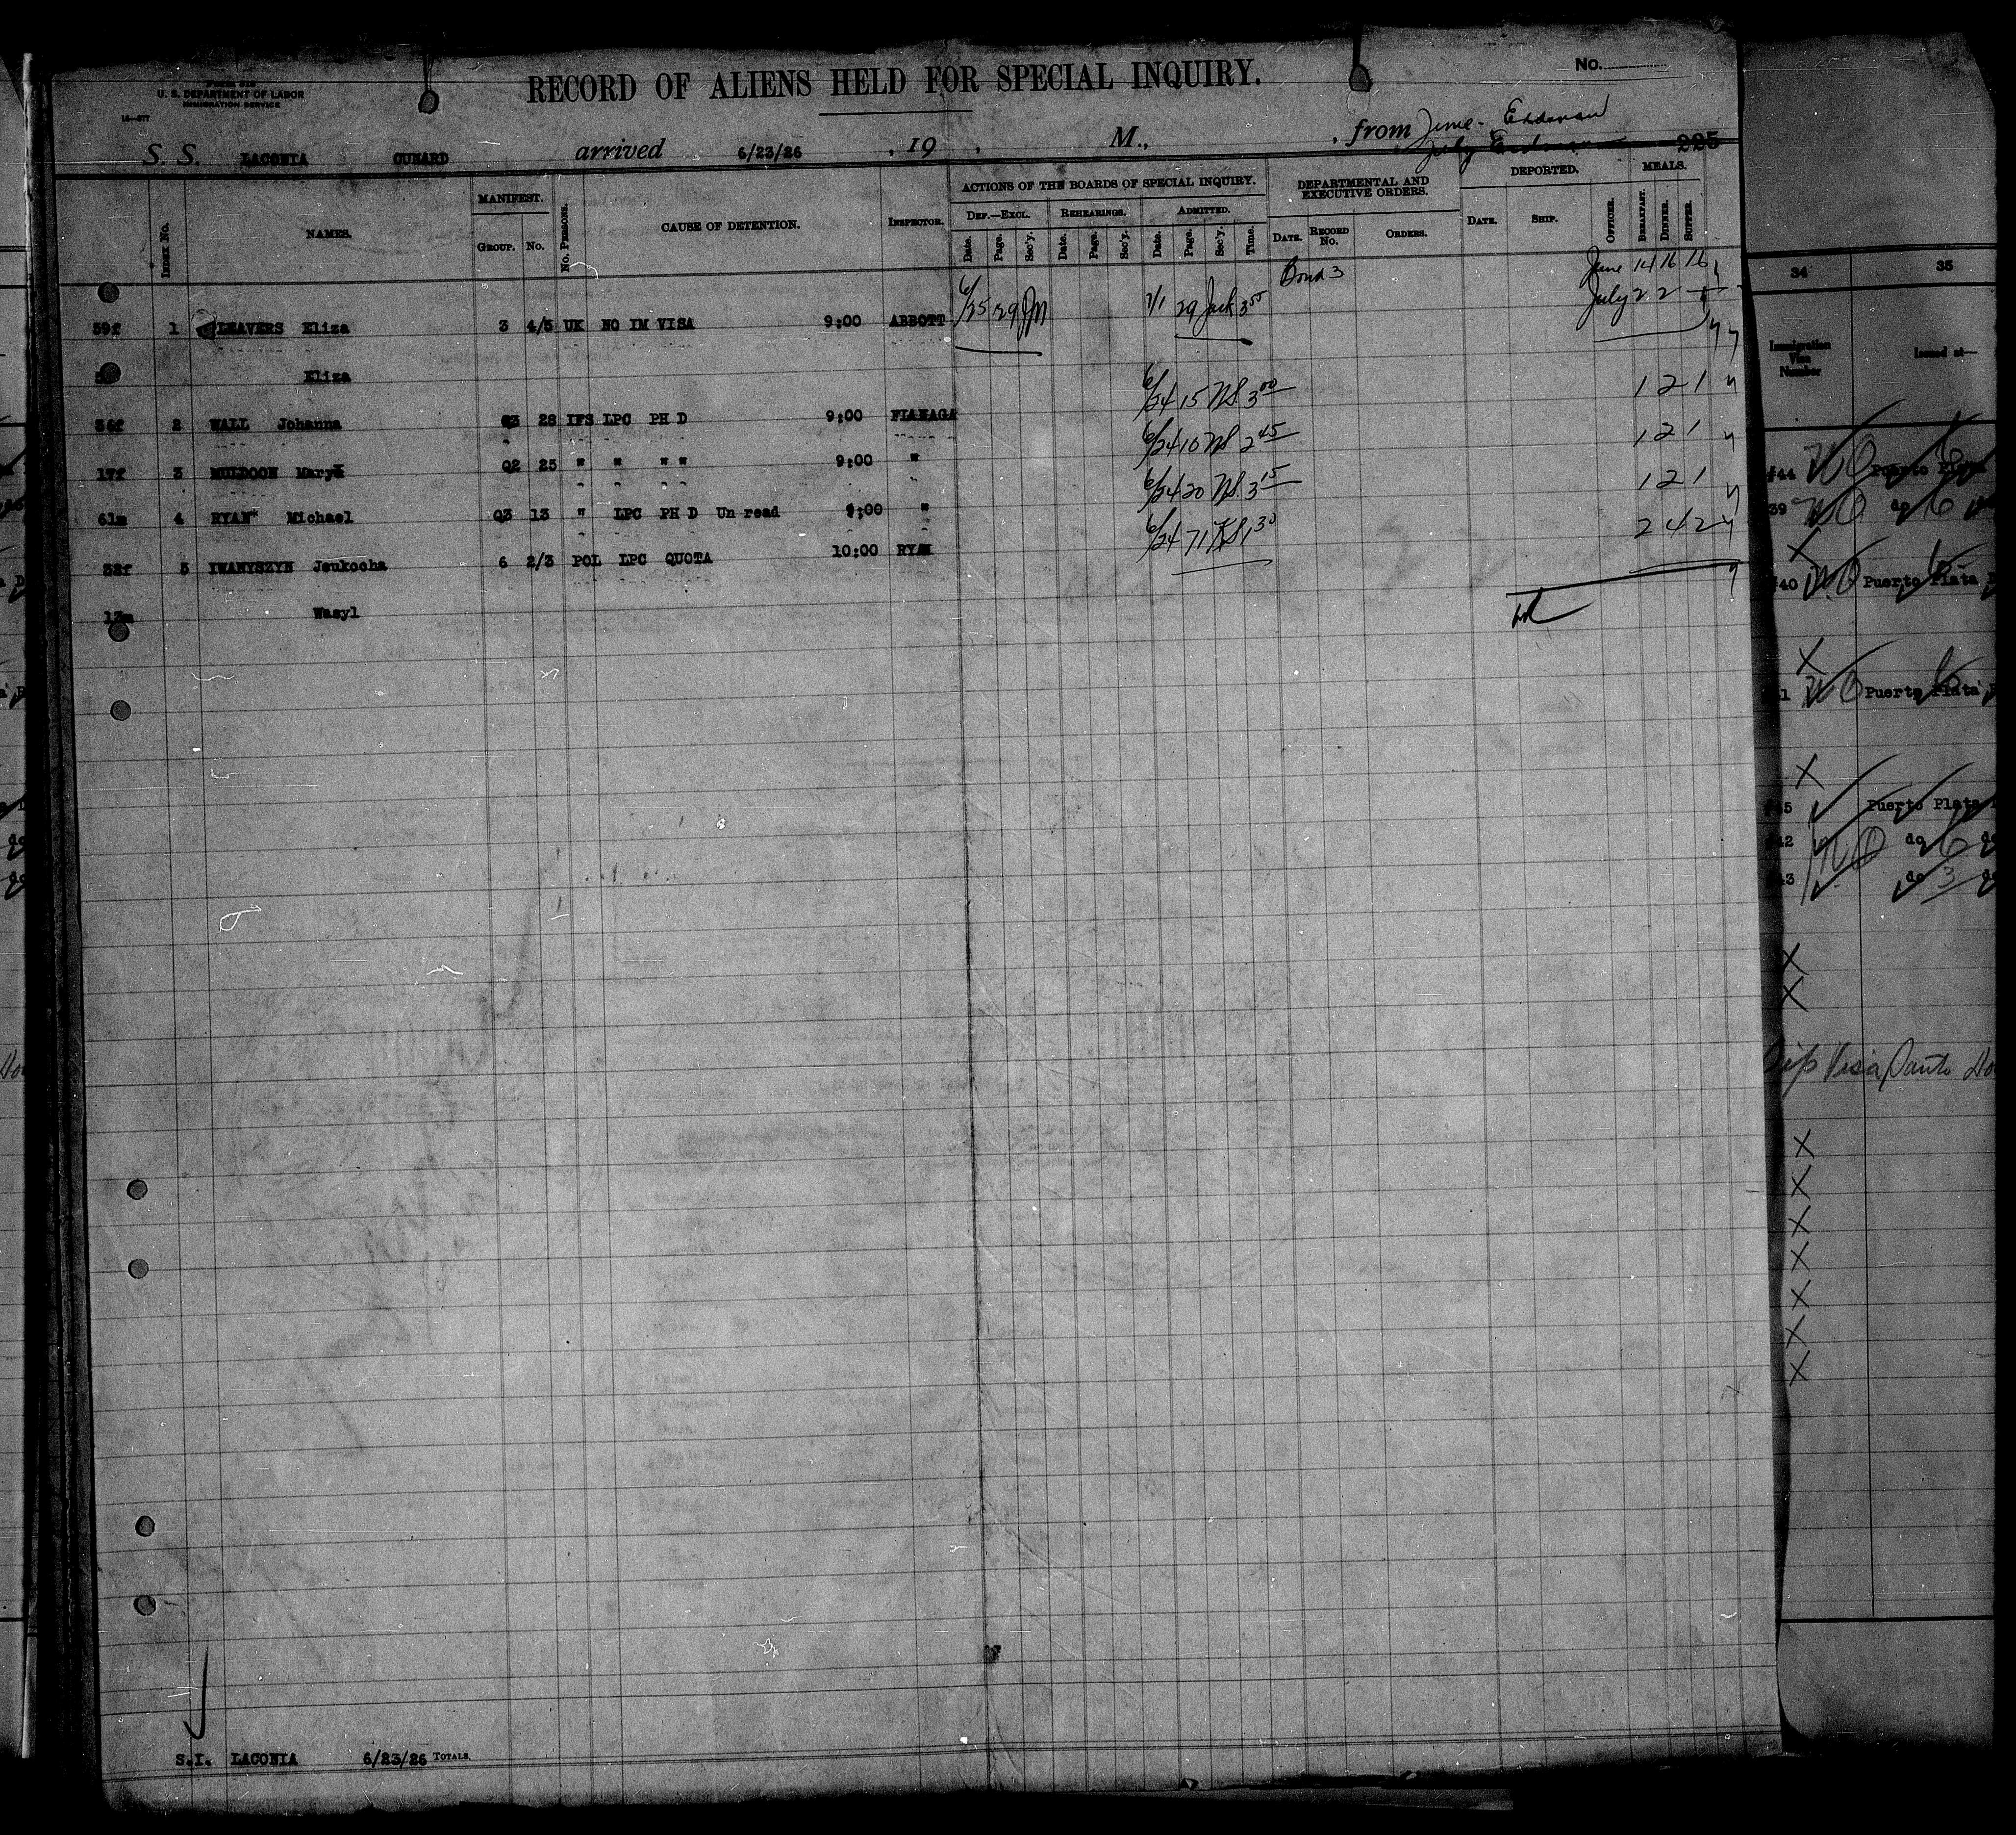 Form 616
U. S. DEPARTMENT OF LABOR
IMMIGRATION SERVICE
16—577
RECORD OF ALIENS HELD FOR SPECIAL INQUIRY.
No.
S. S. LACONIA CUNARD arrived 6/23/26 , 19 , M., , from June - Erdman
225
INDEX No.
NAMES.
MANIFEST.
GROUP. No.
No. PERSONS.
CAUSE OF DETENTION.
INSPECTOR.
ACTIONS OF THE BOARDS OF SPECIAL INQUIRY.
DEF.—EXCL. REHEARINGS. ADMITTED.
Date. Page. Sec'y. Date. Page. Sec'y. Date. Page. Sec'y. Time.
DEPARTMENTAL AND EXECUTIVE ORDERS.
DATE. RECORD No. ORDERS.
DEPORTED.
DATE. SHIP. OFFICER.
MEALS.
BREAKFAST. DINNER. SUPPER.
Bond 3
June 14 16 16
July 2 2
59f 1 CLEAVERS Eliza 3 4/5 UK NO IM VISA 9:00 ABBOTT 6/25 29 JM 7/1 29 Jack 3 55
Eliza
56f 2 WALL Johanna 03 28 IFS LPC PH D 9:00 FLANAGA 6/24 15 NS 3 00 1 2 1
17f 3 MULDOON Mary 02 25 " " " " 9:00 " 6/24 10 NS 2 45 1 2 1
61m 4 RYAN* Michael 03 13 " LPC PH D Un read 9:00 " 6/24 20 NS 3 15 1 2 1
52f 5 IWANYSZYN Jeukocha 6 2/3 POL LPC QUOTA 10:00 RYAN 6/24 71 KS 1 30 2 4 2
13m Wasyl
S.I. LACONIA 6/23/26 TOTALS.
34 35
Immigration Visa Number
Issued at—
#44 Puerto Plata
39 do
#40 Puerto Plata
Puerto Plata
Puerto Plata
do
do 3
Dip Visa Santo Do